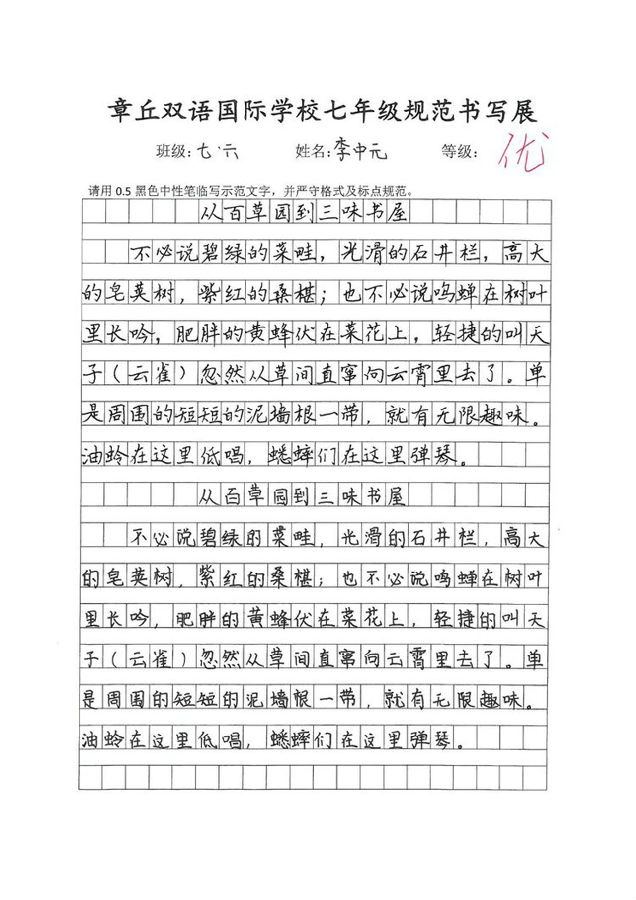 章丘双语国际学校七年级规范书写展
班级：七·六 姓名：李中元 等级：优
请用 0.5 黑色中性笔临写示范文字，并严守格式及标点规范。
从百草园到三味书屋
不必说碧绿的菜畦，光滑的石井栏，高大
的皂荚树，紫红的桑椹；也不必说鸣蝉在树叶
里长吟，肥胖的黄蜂伏在菜花上，轻捷的叫天
子（云雀）忽然从草间直窜向云霄里去了。单
是周围的短短的泥墙根一带，就有无限趣味。
油蛉在这里低唱，蟋蟀们在这里弹琴。
从百草园到三味书屋
不必说碧绿的菜畦，光滑的石井栏，高大
的皂荚树，紫红的桑椹；也不必说鸣蝉在树叶
里长吟，肥胖的黄蜂伏在菜花上，轻捷的叫天
子（云雀）忽然从草间直窜向云霄里去了。单
是周围的短短的泥墙根一带，就有无限趣味。
油蛉在这里低唱，蟋蟀们在这里弹琴。